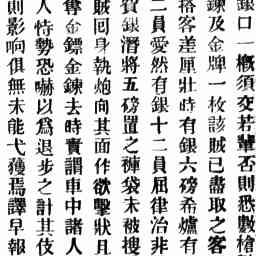 銀口一概須交若輩否則悉數槍
鍊及金牌一枚該賊已盡取之客
搭客差厘壯時有銀六磅希爐有
二員愛然有銀十二員屈律治非
銀潛將五磅置之褲袋未被搜
賊回身執炮向其面作欲擊狀且
奪金鏢金鍊去時賣謂車中諸人
人恃勢恐嚇以爲退步之計其伎
則影响俱無未能弋獲焉譯早報